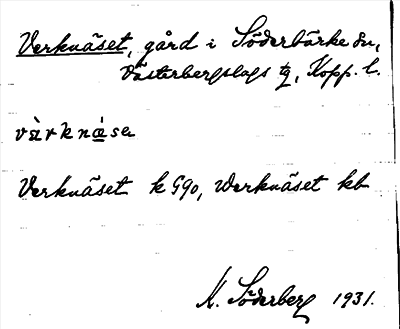 Verknäset, gård i Söderbärke sn,
Västerbergslags tg, Kopp. l.
vàrknạ̈sa
Verknäset k 590, Werknäset kb
M. Söderberg 1931.